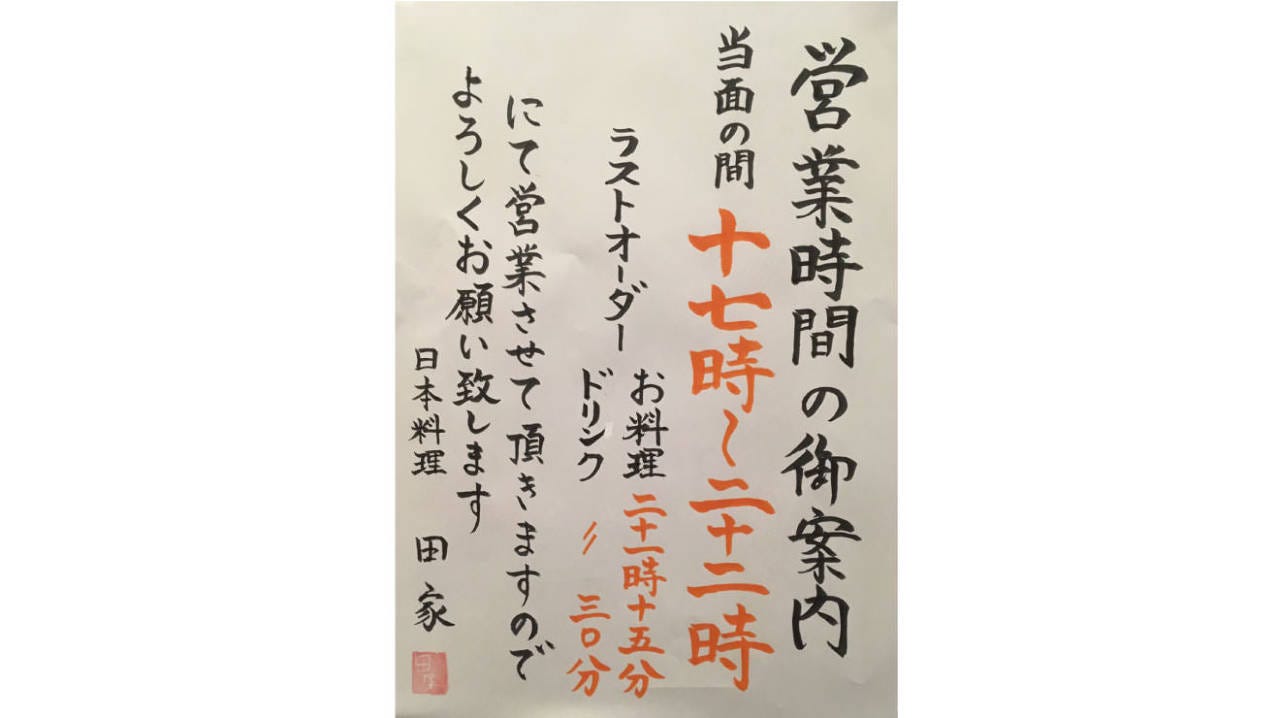 営業時間の御案内
当面の間 十七時〜二十二時
ラストオーダー
お料理 二十一時十五分
ドリンク 〃 三〇分
にて営業させて頂きますので
よろしくお願い致します
日本料理 田家